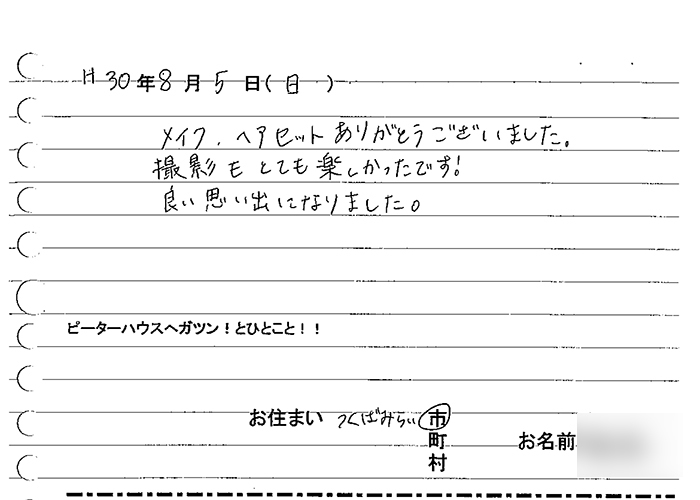 H30年8月5日(日)
メイク、ヘアセットありがとうございました。
撮影もとても楽しかったです!
良い思い出になりました。
ピーターハウスへガツン!とひとこと!!
お住まい つくばみらい 市
町
村
お名前